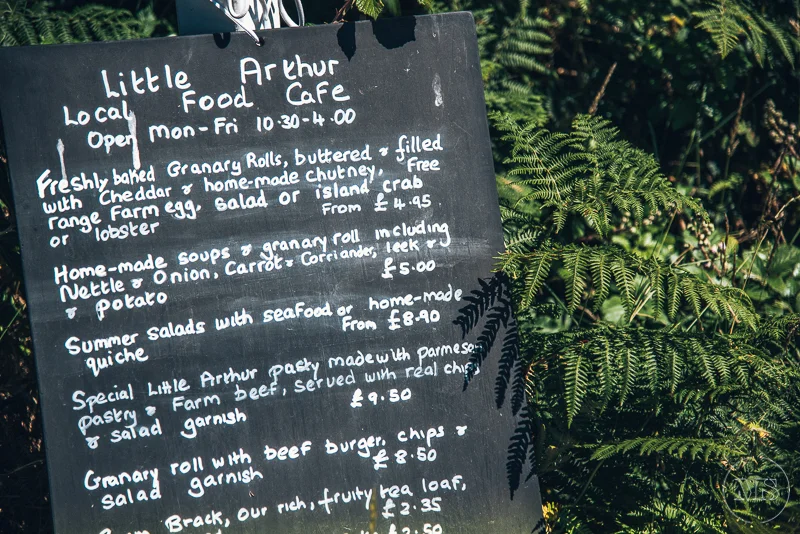 Little Arthur
Local Food Cafe
Open Mon-Fri 10.30-4.00
Freshly baked Granary Rolls, buttered & filled
with Cheddar & home-made chutney, Free
range Farm egg, salad or island crab
or lobster From £4.95
Home-made soups & granary roll including
Nettle & Onion, Carrot & Corriander, leek &
& potato £5.00
Summer salads with seafood or home-made
quiche From £8.90
Special Little Arthur pasty made with parmesan
pastry & Farm beef, served with real chips
& salad garnish £9.50
Granary roll with beef burger, chips &
salad garnish £8.50
Brack, our rich, fruity tea loaf,
£2.35
£2.50